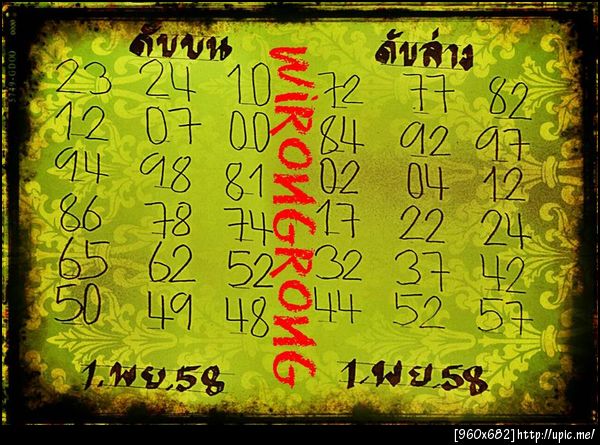 ดับบน
23 24 10
12 07 00
94 98 81
86 78 74
65 62 52
50 49 48
1.พย.58
WiRONGRONG
ดับล่าง
72 77 82
84 92 97
02 04 12
17 22 24
32 37 42
44 52 57
1.พย.58
[960x682]http://upic.me/